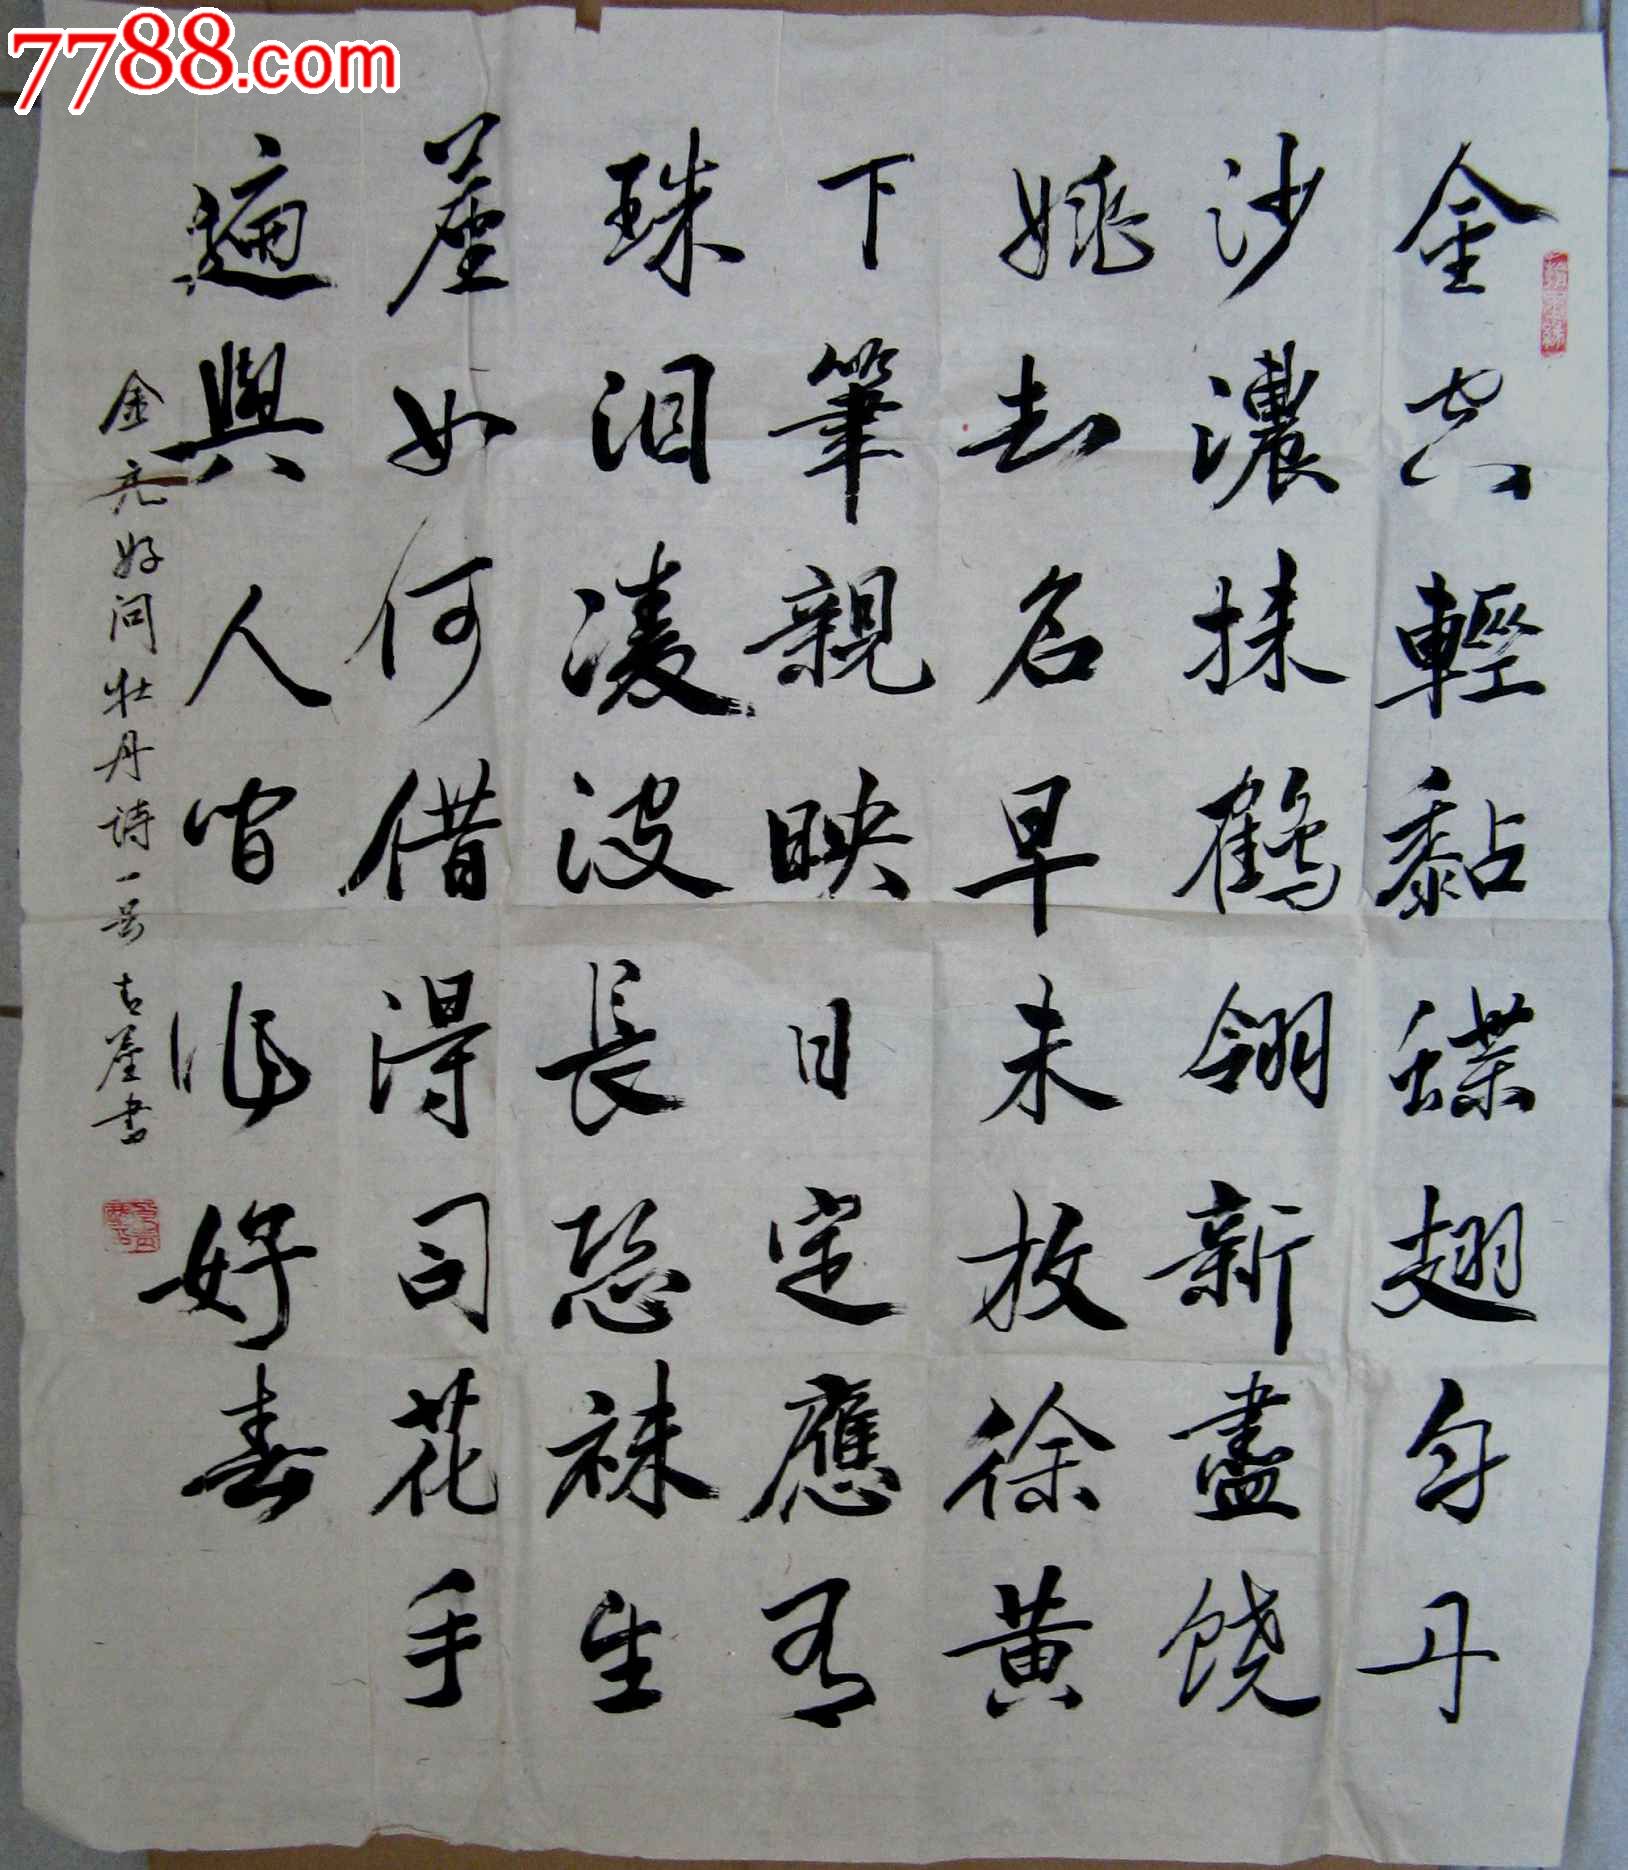 7788.com
金輕黏蝶翅匀丹
沙濃抹鶴翎新盡饒
姚去名早未放徐黃
下筆親映日定應有
珠泪凌波長恐袜生
塵如何借得司花手
遍與人間作好春
金元好问牡丹詩一首 古塵書